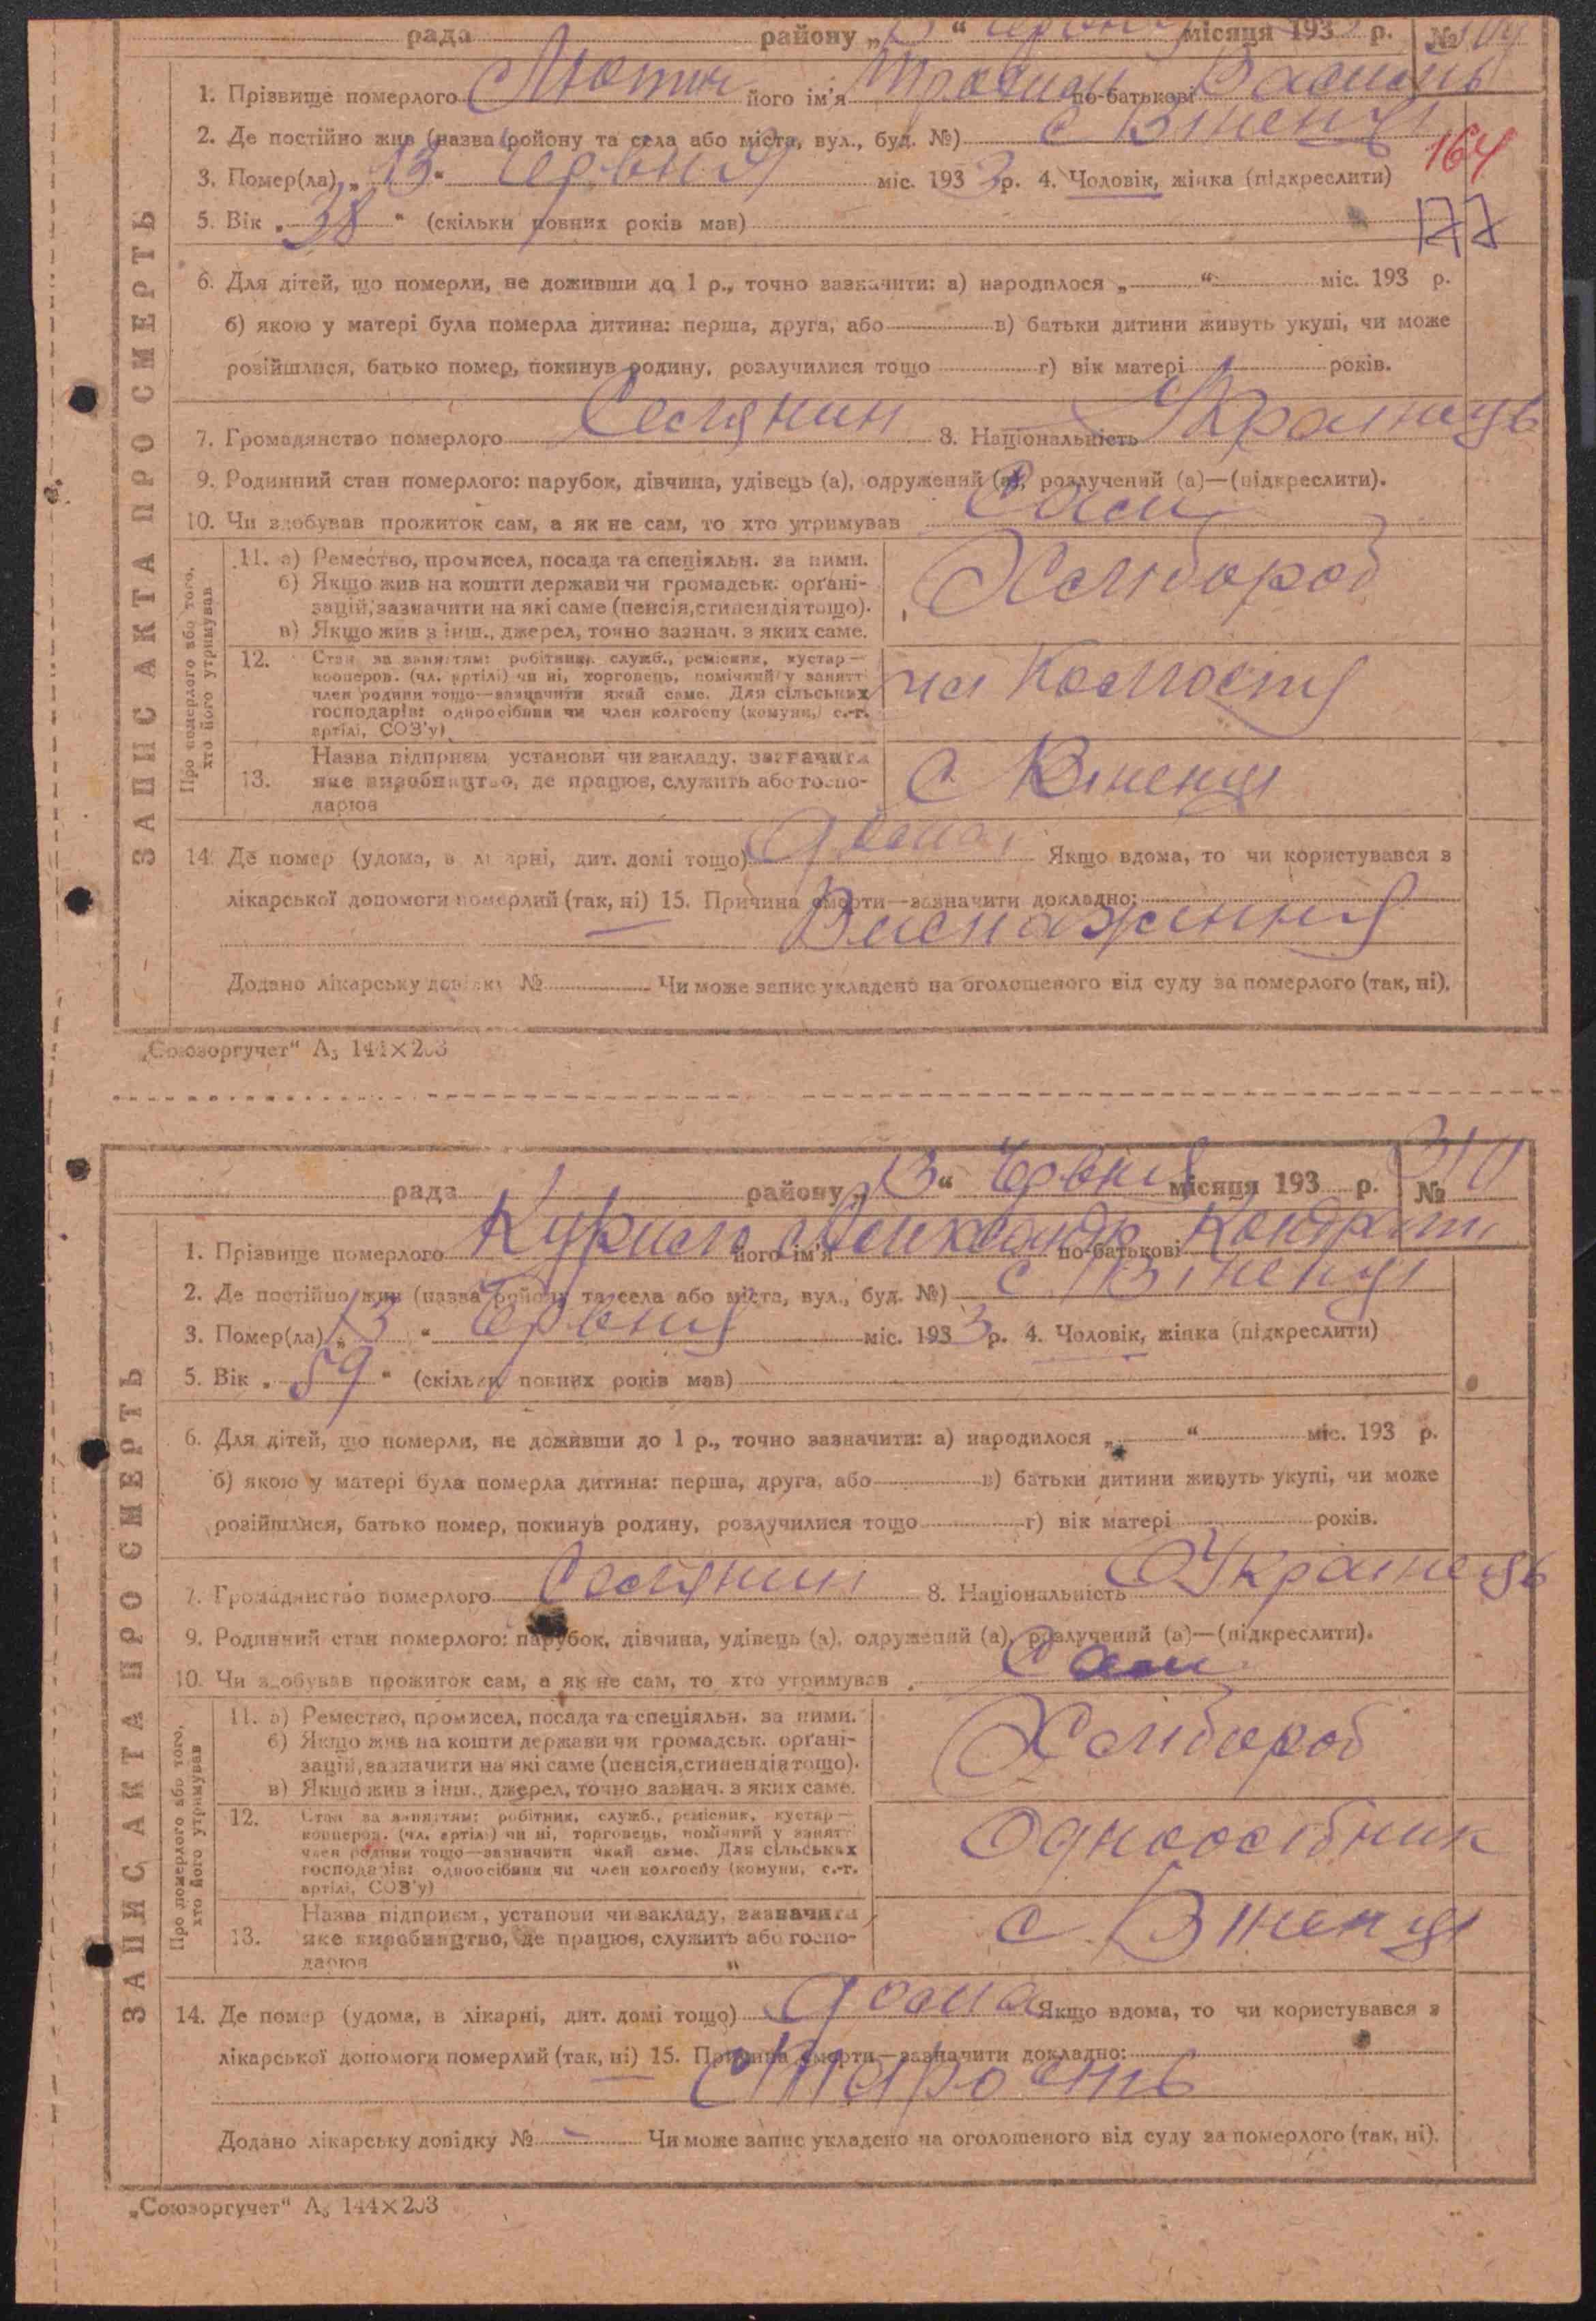 рада району „13“ червня місяця 193 р. №
1. Прізвище померлого Лютич його ім'я Трохим по-батькові Василь
2. Де постійно жив (назва району та села або міста, вул., буд. №) с Віненці
164
3. Помер(ла) „13“ червня міс. 1933 р. 4. Чоловік, жінка (підкреслити)
177
5. Вік „38“ (скільки повних років мав)
6. Для дітей, що померли, не доживши до 1 р., точно зазначити: а) народилося „ “ міс. 193 р.
б) якою у матері була померла дитина: перша, друга, або в) батьки дитини живуть укупі, чи може
розійшлися, батько помер, покинув родину, розлучилися тощо г) вік матері років.
7. Громадянство померлого Селянин 8. Національність Українець
9. Родинний стан померлого: парубок, дівчина, удівець (а), одружений (а), розлучений (а)—(підкреслити).
10. Чи здобував прожиток сам, а як не сам, то хто утримував Сам
ЗАПИС АКТА ПРО СМЕРТЬ
Про померлого або того, хто його утримував
11. а) Ремество, промисел, посада та спеціяльн. за ними.
б) Якщо жив на кошти держави чи громадськ. орґані-
зацій, зазначити на які саме (пенсія, стипендія тощо).
в) Якщо жив з інш., джерел, точно зазнач. з яких саме.
Хлібороб
12. Стан за заняттям: робітник, служб., ремісник, кустар—
кооперов. (чл. артілі) чи ні, торговець, помічний у занятт
член родини тощо—зазначити який саме. Для сільських
господарів: одноосібник чи член колгоспу (комуни, с.-г.
артілі, СОЗ'у)
чл Колгоспу
13. Назва підприєм установи чи закладу, зазначити
яке виробництво, де працює, служить або госпо-
дарює
с Віненці
14. Де помер (удома, в лікарні, дит. домі тощо) дома Якщо вдома, то чи користувався з
лікарської допомоги померлий (так, ні) 15. Причина смерти—зазначити докладно:
Виснаження
Додано лікарську довідку № Чи може запис укладено на оголошеного від суду за померлого (так, ні).
„Союзоргучет“ А₅ 144×203
рада району „13“ червня місяця 193 р. № 310
1. Прізвище померлого Курило його ім'я Олександр по-батькові Кондрати
2. Де постійно жив (назва району та села або міста, вул., буд. №) с. Віненці
3. Помер(ла) „13“ Червня міс. 1933 р. 4. Чоловік, жінка (підкреслити)
5. Вік „59“ (скільки повних років мав)
6. Для дітей, що померли, не доживши до 1 р., точно зазначити: а) народилося „ “ міс. 193 р.
б) якою у матері була померла дитина: перша, друга, або в) батьки дитини живуть укупі, чи може
розійшлися, батько помер, покинув родину, розлучилися тощо г) вік матері років.
7. Громадянство померлого Селянин 8. Національність Українець
9. Родинний стан померлого: парубок, дівчина, удівець (а), одружений (а), розлучений (а)—(підкреслити).
10. Чи здобував прожиток сам, а як не сам, то хто утримував Сам
ЗАПИС АКТА ПРО СМЕРТЬ
Про померлого або того, хто його утримував
11. а) Ремество, промисел, посада та спеціяльн. за ними.
б) Якщо жив на кошти держави чи громадськ. орґані-
зацій, зазначити на які саме (пенсія, стипендія тощо).
в) Якщо жив з інш., джерел, точно зазнач. з яких саме.
Хлібороб
12. Стан за заняттям: робітник, служб., ремісник, кустар—
кооперов. (чл. артілі) чи ні, торговець, помічний у занятт
член родини тощо—зазначити який саме. Для сільських
господарів: одноосібник чи член колгоспу (комуни, с.-г.
артілі, СОЗ'у)
Одноосібник
13. Назва підприєм, установи чи закладу, зазначити
яке виробництво, де працює, служить або госпо-
дарює
с Віненці
14. Де помер (удома, в лікарні, дит. домі тощо) дома Якщо вдома, то чи користувався з
лікарської допомоги померлий (так, ні) 15. Причина смерти—зазначити докладно:
Старость
Додано лікарську довідку № – Чи може запис укладено на оголошеного від суду за померлого (так, ні).
„Союзоргучет“ А₅ 144×203